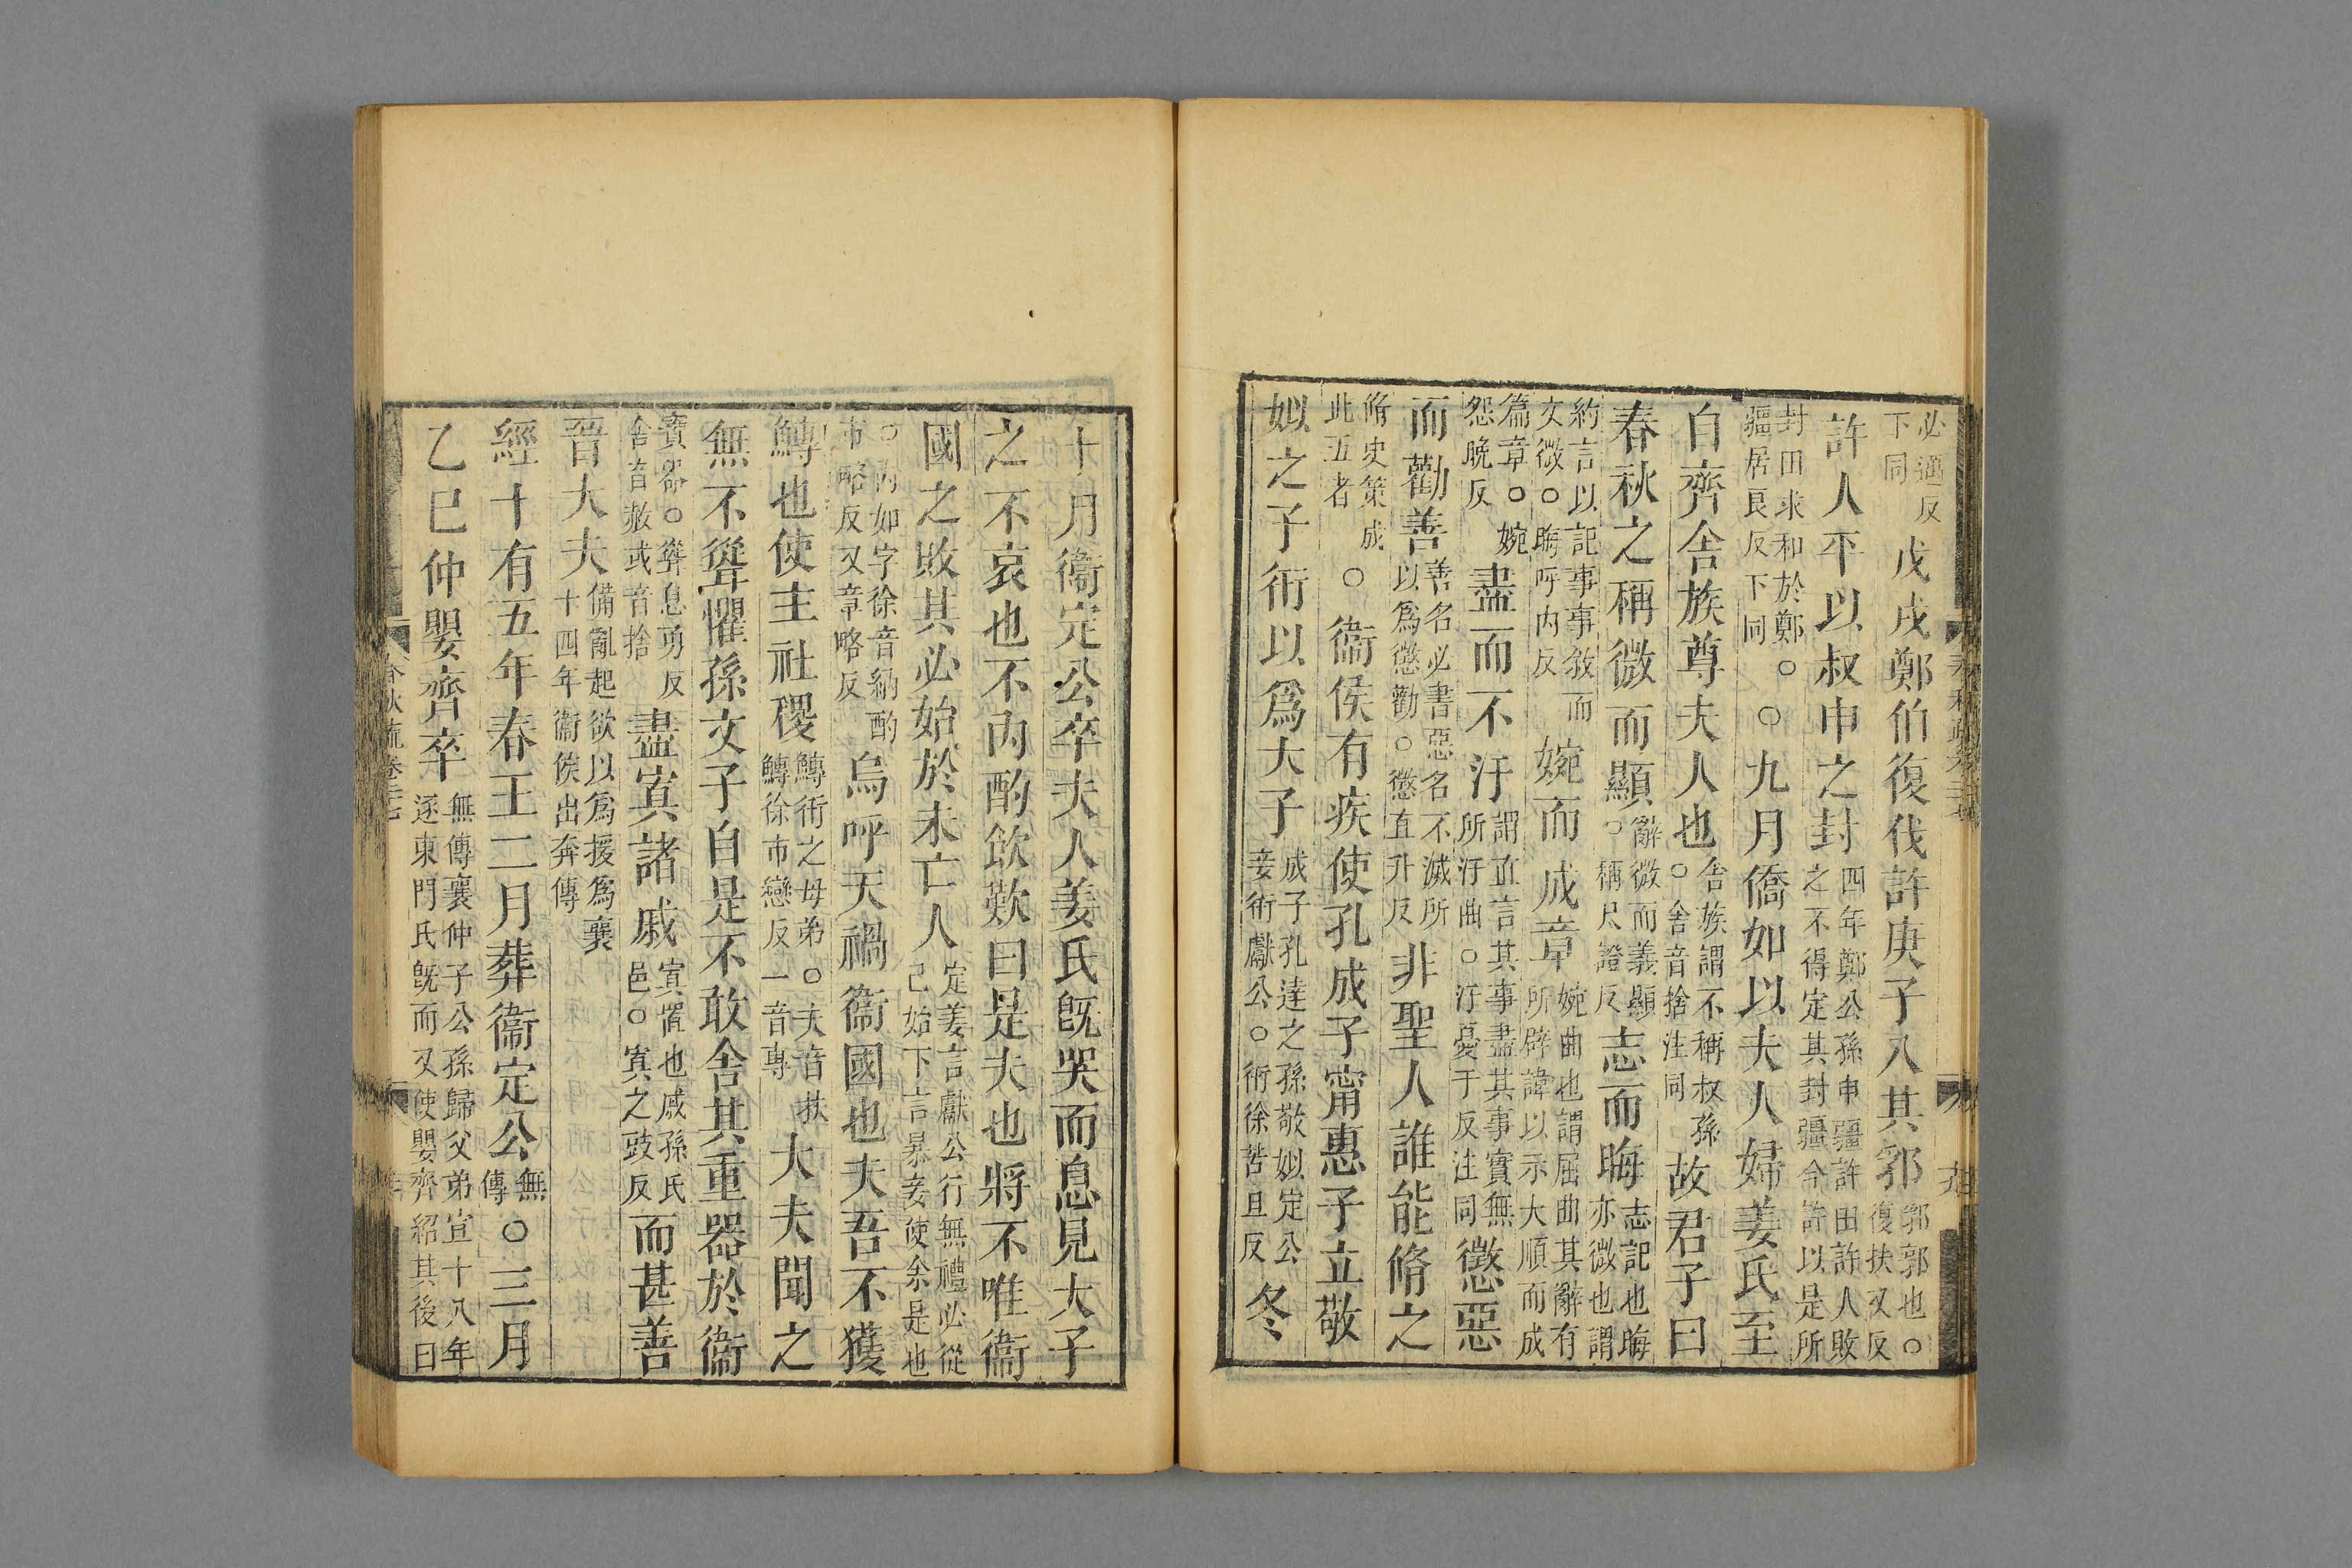 必適反下同戊戌鄭伯復伐許庚子入其郛郛郭也○復扶又反
許人平以叔申之封四年鄭公孫申疆許田許人敗之不得定其封疆今許以是所
封田求和於鄭○疆居良反下同○九月僑如以夫人婦姜氏至
自齊舍族尊夫人也舍族謂不稱叔孫○舍音捨注同故君子曰
春秋之稱微而顯辭微而義顯○稱尺證反志而晦志記也晦亦微也謂
約言以記事事敘而文微○晦呼内反婉而成章婉曲也謂屈曲其辭有所辟諱以示大順而成
篇章○婉怨晚反盡而不汙謂直言其事盡其事實無所汙曲○汙憂于反注同懲惡
而勸善善名必書惡名不滅所以爲懲勸○懲直升反非聖人誰能脩之
脩史策成此五者○衞侯有疾使孔成子甯惠子立敬
姒之子衎以爲大子成子孔達之孫敬姒定公妾衎獻公○衎徐苦旦反冬
十月衞定公卒夫人姜氏旣哭而息見大子
之不哀也不内酌飲歎曰是夫也將不唯衞
國之敗其必始於未亡人定姜言獻公行無禮必從己始下言暴妾使余是也
○内如字徐音納酌市略反又章略反烏呼天禍衞國也夫吾不獲
鱄也使主社稷鱄衎之母弟○夫音扶鱄徐市戀反一音專大夫聞之
無不聳懼孫文子自是不敢舍其重器於衞
寶器○聳息勇反舍音赦或音捨盡寘諸戚寘置也戚孫氏邑○寘之豉反而甚善
晉大夫備亂起欲以爲援爲襄十四年衞侯出奔傳
經十有五年春王二月葬衞定公無傳○三月
乙巳仲嬰齊卒無傳襄仲子公孫歸父弟宣十八年逐東門氏旣而又使嬰齊紹其後曰